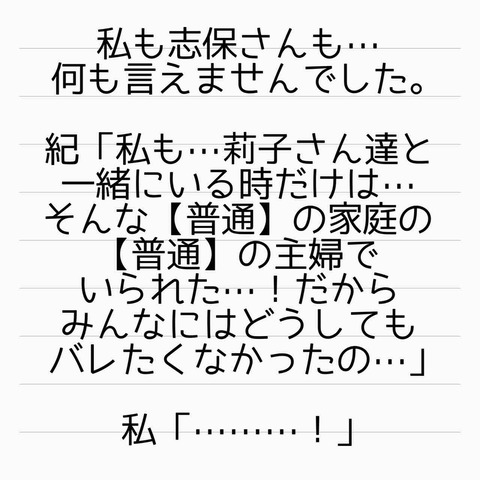 私も志保さんも…
何も言えませんでした。
紀「私も…莉子さん達と
一緒にいる時だけは…
そんな【普通】の家庭の
【普通】の主婦で
いられた…！だから
みんなにはどうしても
バレたくなかったの…」
私「………！」